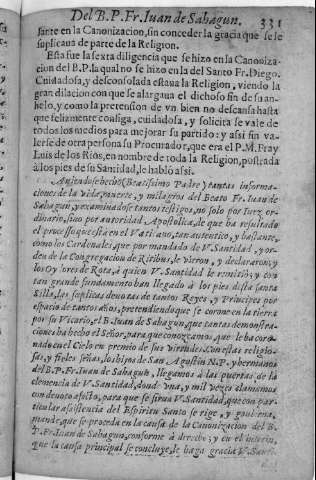 Del B. P. Fr. Iuan de Sahagun. 331
sante en la Canonizacion, sin conceder la gracia que se le
suplicaua de parte de la Religion.
Esta fue la sexta diligencia que se hizo en la Canoniza-
cion del B. P. la qual no se hizo en la del Santo Fr. Diego.
Cuidadosa, y desconsolada estaua la Religion, viendo la
gran dilacion con que se alargaua el dichoso fin de su an-
helo, y como la pretension de vn bien no descansa hasta
que felizmente consiga, cuidadosa, y solicita se vale de
todos los medios para mejorar su partido: y assi fin va-
lerse de otra persona su Procurador, que era el P. M. Fray
Luis de los Rios, en nombre de toda la Religion, postrada
à los pies de su Santidad, le habló assi.
Auiendose hecho (Beatissimo Padre) tantas informa-
ciones de la vida, muerte, y milagros del Beato Fr. Iuan de
Sahagun, y examinadose tantos testigos, no solo por Iuez or-
dinario, sino por autoridad Apostolica, de que ha resultado
el processo que està en el Vaticano, tan autentico, y bastante,
como los Cardenales, que por mandado de V. Santidad, y or-
den de la Congregacion de Ritibus, le vieron, y declararon; y
los Oydores de Rota, à quien V. Santidad le remitiò; y con
tan grande fundamento han llegado à los pies desta santa
Silla, las suplicas deuotas de tantos Reyes, y Principes por
espacio de tantos años, pretendiendo que se corone en la tierra
por su Vicario, el B. Iuan de Sahagun, que tantas demonstra-
ciones ha hecho el Señor, para que conozcamos, que le ha coro-
nado en el Cielo en premio de sus virtudes. Con estas religio-
sas, y fieles señas, los hijos de San Agustin N. P. y hermanos
del B. P. Fr. Iuan de Sahagun, llegamos à las puertas de la
clemencia de V. Santidad, donde vna, y mil vezes clamamos
con deuoto afecto, para que se sirua V. Santidad, que con par-
ticular asistencia del Espiritu Santo se rige, y gouierna,
mande, que se proceda en la causa de la Canonizacion del B.
P. Fr. Iuan de Sahagun, conforme à derecho; y en el interin,
que la causa principal se concluye, le haga gracia V. Santi-